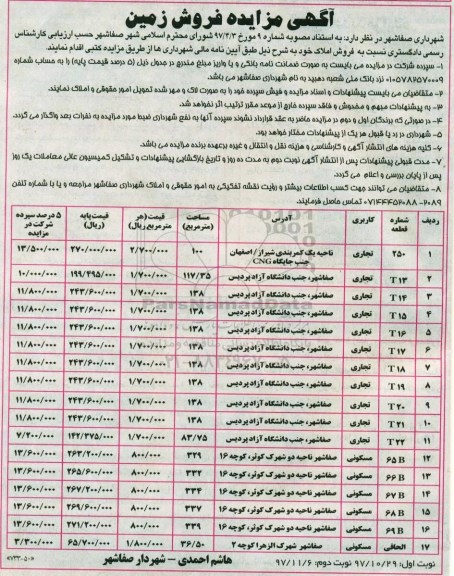 آگهی مزایده فروش زمین
شهرداری صفاشهر در نظر دارد: به استناد مصوبه شماره ۹ مورخ ۹۷/۴/۳ شورای محترم اسلامی شهر صفاشهر حسب ارزیابی کارشناس
رسمی دادگستری نسبت به فروش املاک خود به شرح ذیل طبق آیین نامه مالی شهرداری ها از طریق مزایده کتبی اقدام نماید.
۱- سپرده شرکت در مزایده می بایست به صورت ضمانت نامه بانکی و یا واریز مبلغ مندرج در جدول ذیل (۵ درصد قیمت پایه) را به حساب شماره
۰۱۰۵۷۸۲۶۵۷۰۰۹ نزد بانک ملی شعبه دهبید به نام شهرداری صفاشهر می باشد.
۲- متقاضیان می بایست پیشنهادات و اسناد مزایده و فیش سپرده خود را به صورت لاک و مهر شده تحویل امور حقوقی و املاک نمایند.
۳- به پیشنهادات مبهم و مخدوش و فاقد سپرده خارج از موعد مقرر ترتیب اثر نخواهد شد.
۴- در صورتی که برندگان اول و دوم در مزایده حاضر به عقد قرارداد نشوند سپرده آنها به نفع شهرداری ضبط مورد مزایده به نفرات بعد واگذار می گردد.
۵- شهرداری در رد یا قبول هر یک از پیشنهادات مختار خواهد بود.
۶- کلیه هزینه های انتشار آگهی و کارشناسی و هزینه نقل و انتقال و غیره برعهده برنده مزایده می باشد.
۷- مدت قبولی پیشنهادات پس از انتشار آگهی نوبت دوم به مدت ده روز و تاریخ بازگشایی پیشنهادات و تشکیل کمیسیون عالی معاملات یک روز
پس از پایان بررسی و اعلام می گردد.
۸- متقاضیان می توانند جهت کسب اطلاعات بیشتر و رؤیت نقشه تفکیکی به امور حقوقی و املاک شهرداری صفاشهر مراجعه و یا با شماره تلفن
۲۰۸۹-۰۷۱۴۴۴۵۲۰۸۸ تماس حاصل فرمایند.
ردیف شماره قطعه کاربری آدرس مساحت (مترمربع) قیمت (هر مترمربع ریال) قیمت پایه (ریال) ۵ درصد سپرده شرکت در مزایده
۱ ۲۵۰ تجاری ناحیه یک کمربندی شیراز / اصفهان جنب جایگاه CNG ۱۰۰ ۲/۷۰۰/۰۰۰ ۲۷۰/۰۰۰/۰۰۰ ۱۳/۵۰۰/۰۰۰
۲ T۱۳ تجاری صفاشهر، جنب دانشگاه آزاد پردیس ۱۱۷/۳۵ ۱/۷۰۰/۰۰۰ ۱۹۹/۴۹۵/۰۰۰ ۱۰/۰۰۰/۰۰۰
۳ T۱۴ تجاری صفاشهر، جنب دانشگاه آزاد پردیس ۱۳۸ ۱/۷۰۰/۰۰۰ ۲۴۳/۶۰۰/۰۰۰ ۱۱/۸۰۰/۰۰۰
۴ T۱۵ تجاری صفاشهر، جنب دانشگاه آزاد پردیس ۱۳۸ ۱/۷۰۰/۰۰۰ ۲۴۳/۶۰۰/۰۰۰ ۱۱/۸۰۰/۰۰۰
۵ T۱۶ تجاری صفاشهر، جنب دانشگاه آزاد پردیس ۱۳۸ ۱/۷۰۰/۰۰۰ ۲۴۳/۶۰۰/۰۰۰ ۱۱/۸۰۰/۰۰۰
۶ T۱۷ تجاری صفاشهر، جنب دانشگاه آزاد پردیس ۱۳۸ ۱/۷۰۰/۰۰۰ ۲۴۳/۶۰۰/۰۰۰ ۱۱/۸۰۰/۰۰۰
۷ T۱۸ تجاری صفاشهر، جنب دانشگاه آزاد پردیس ۱۳۸ ۱/۷۰۰/۰۰۰ ۲۴۳/۶۰۰/۰۰۰ ۱۱/۸۰۰/۰۰۰
۸ T۱۹ تجاری صفاشهر، جنب دانشگاه آزاد پردیس ۱۳۸ ۱/۷۰۰/۰۰۰ ۲۴۳/۶۰۰/۰۰۰ ۱۱/۸۰۰/۰۰۰
۹ T۲۰ تجاری صفاشهر، جنب دانشگاه آزاد پردیس ۱۳۸ ۱/۷۰۰/۰۰۰ ۲۴۳/۶۰۰/۰۰۰ ۱۱/۸۰۰/۰۰۰
۱۰ T۲۱ تجاری صفاشهر، جنب دانشگاه آزاد پردیس ۱۳۸ ۱/۷۰۰/۰۰۰ ۲۴۳/۶۰۰/۰۰۰ ۱۱/۸۰۰/۰۰۰
۱۱ T۲۲ تجاری صفاشهر، جنب دانشگاه آزاد پردیس ۸۳/۷۵ ۱/۷۰۰/۰۰۰ ۱۴۲/۳۷۵/۰۰۰ ۷/۲۰۰/۰۰۰
۱۲ ۶۵B مسکونی صفاشهر ناحیه دو شهرک کوثر، کوچه ۱۶ ۳۲۹ ۸۰۰/۰۰۰ ۲۶۳/۲۰۰/۰۰۰ ۱۳/۶۰۰/۰۰۰
۱۳ ۶۶B مسکونی صفاشهر ناحیه دو شهرک کوثر، کوچه ۱۶ ۳۳۲ ۸۰۰/۰۰۰ ۲۶۵/۶۰۰/۰۰۰ ۱۳/۶۰۰/۰۰۰
۱۴ ۶۷B مسکونی صفاشهر ناحیه دو شهرک کوثر، کوچه ۱۶ ۳۳۴ ۸۰۰/۰۰۰ ۲۶۷/۲۰۰/۰۰۰ ۱۳/۶۰۰/۰۰۰
۱۵ ۶۸B مسکونی صفاشهر ناحیه دو شهرک کوثر، کوچه ۱۶ ۳۳۷ ۸۰۰/۰۰۰ ۲۶۹/۶۰۰/۰۰۰ ۱۳/۶۰۰/۰۰۰
۱۶ ۶۹B مسکونی صفاشهر ناحیه دو شهرک کوثر، کوچه ۱۶ ۳۳۹ ۸۰۰/۰۰۰ ۲۷۱/۲۰۰/۰۰۰ ۱۳/۶۰۰/۰۰۰
۱۷ الحاقی مسکونی صفاشهر شهرک الزهرا کوچه ۲ ۳۶/۵۰ ۱/۸۰۰/۰۰۰ ۶۵/۷۰۰/۰۰۰ ۳/۳۰۰/۰۰۰
نوبت اول: ۹۷/۱۰/۲۹ نوبت دوم: ۹۷/۱۱/۶
هاشم احمدی - شهردار صفاشهر
۹۷۳۳۰۵۰۶